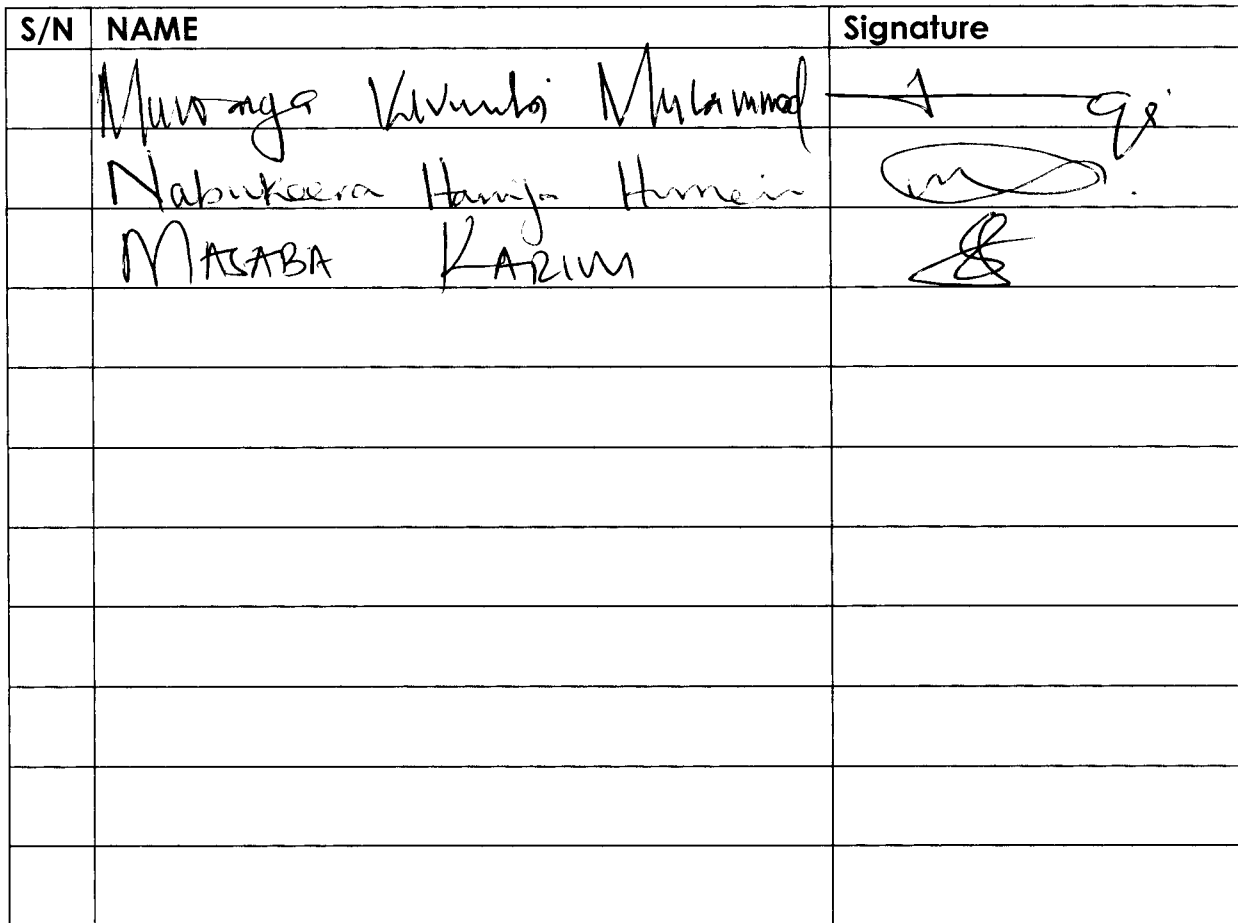 S/N NAME Signature
Muwanga Kivumbi Muhammad
Nabukeera Hamija Hussein
MASABA KARIM